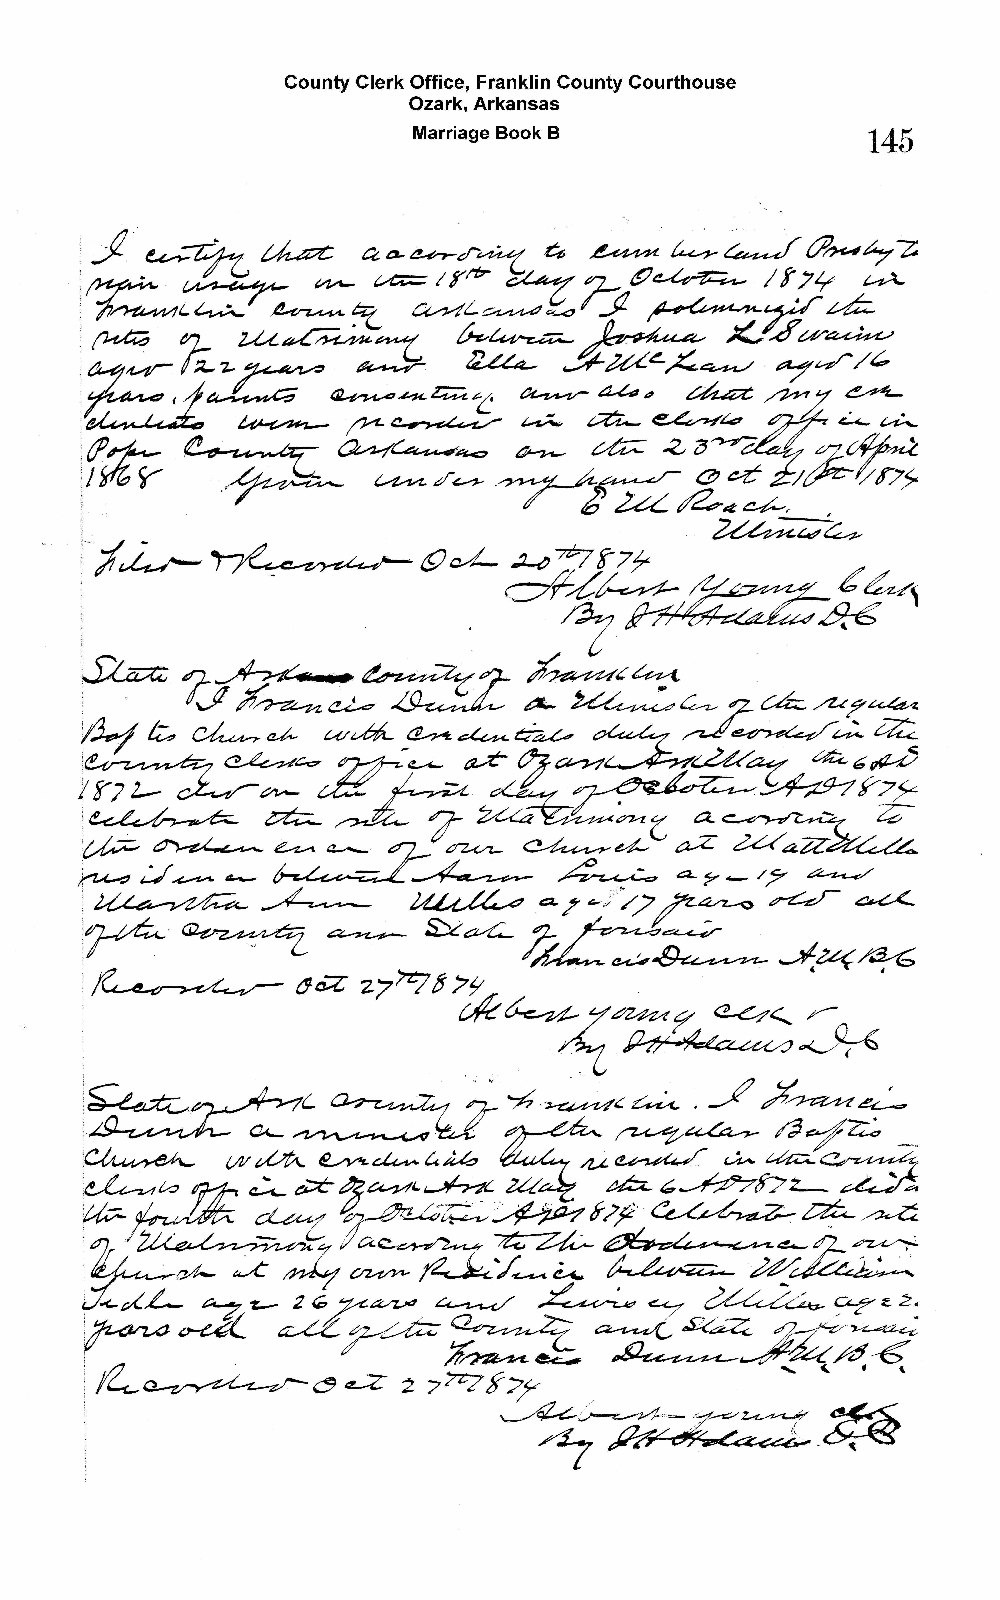 County Clerk Office, Franklin County Courthouse
Ozark, Arkansas
Marriage Book B
145
I certify that according to Cumberland Presbyte
rian usage on the 18th day of October 1874 in
Franklin County Arkansas I solemnized the
rites of Matrimony between Joshua L. Swaim
aged 22 years and Ella A McLean aged 16
years, parents consenting, and also that my cre
dentials were recorded in the clerks office in
Pope County Arkansas on the 23rd day of April
1868 Given under my hand Oct 21st 1874
E M Roach.
Minister
Filed & Recorded Oct 20th 1874
Albert Young Clerk
By J H Adams D.C
State of County of Franklin
I Francis Dunn a Minister of the regular
Baptis Church with Credentials duly recorded in the
County Clerks office at Ozark Ark May the 6 AD
1872 did on the first day of October AD 1874
celebrate the rite of Matrimony acording to
the ordenence of our Church at Matt Mills
residence between Aaron Louis age 19 and
Martha Ann Milles age 17 years old all
of the County and State of forisaid
Francis Dunn A.M.B.C
Recorded Oct 27th 1874
Albert young Clk
By J H Adams D.C
State of Ark County of Franklin. I Francis
Dunn a minister of the regular Baptis
Church with Credentials duly recorded in the County
clerks office at Ozark Ark May the 6 AD 1872 did on
the fourth day of October AD 1874 Celebrate the rite
of Matrimony acording to the Ordenence of our
Church at my own Residence between William
age 26 years and Milles age 2.
years old all of the County and State of
Francis Dunn A.M.B.C.
Recorded Oct 27th 1874
Albert young Clk
By J H Adams D.C